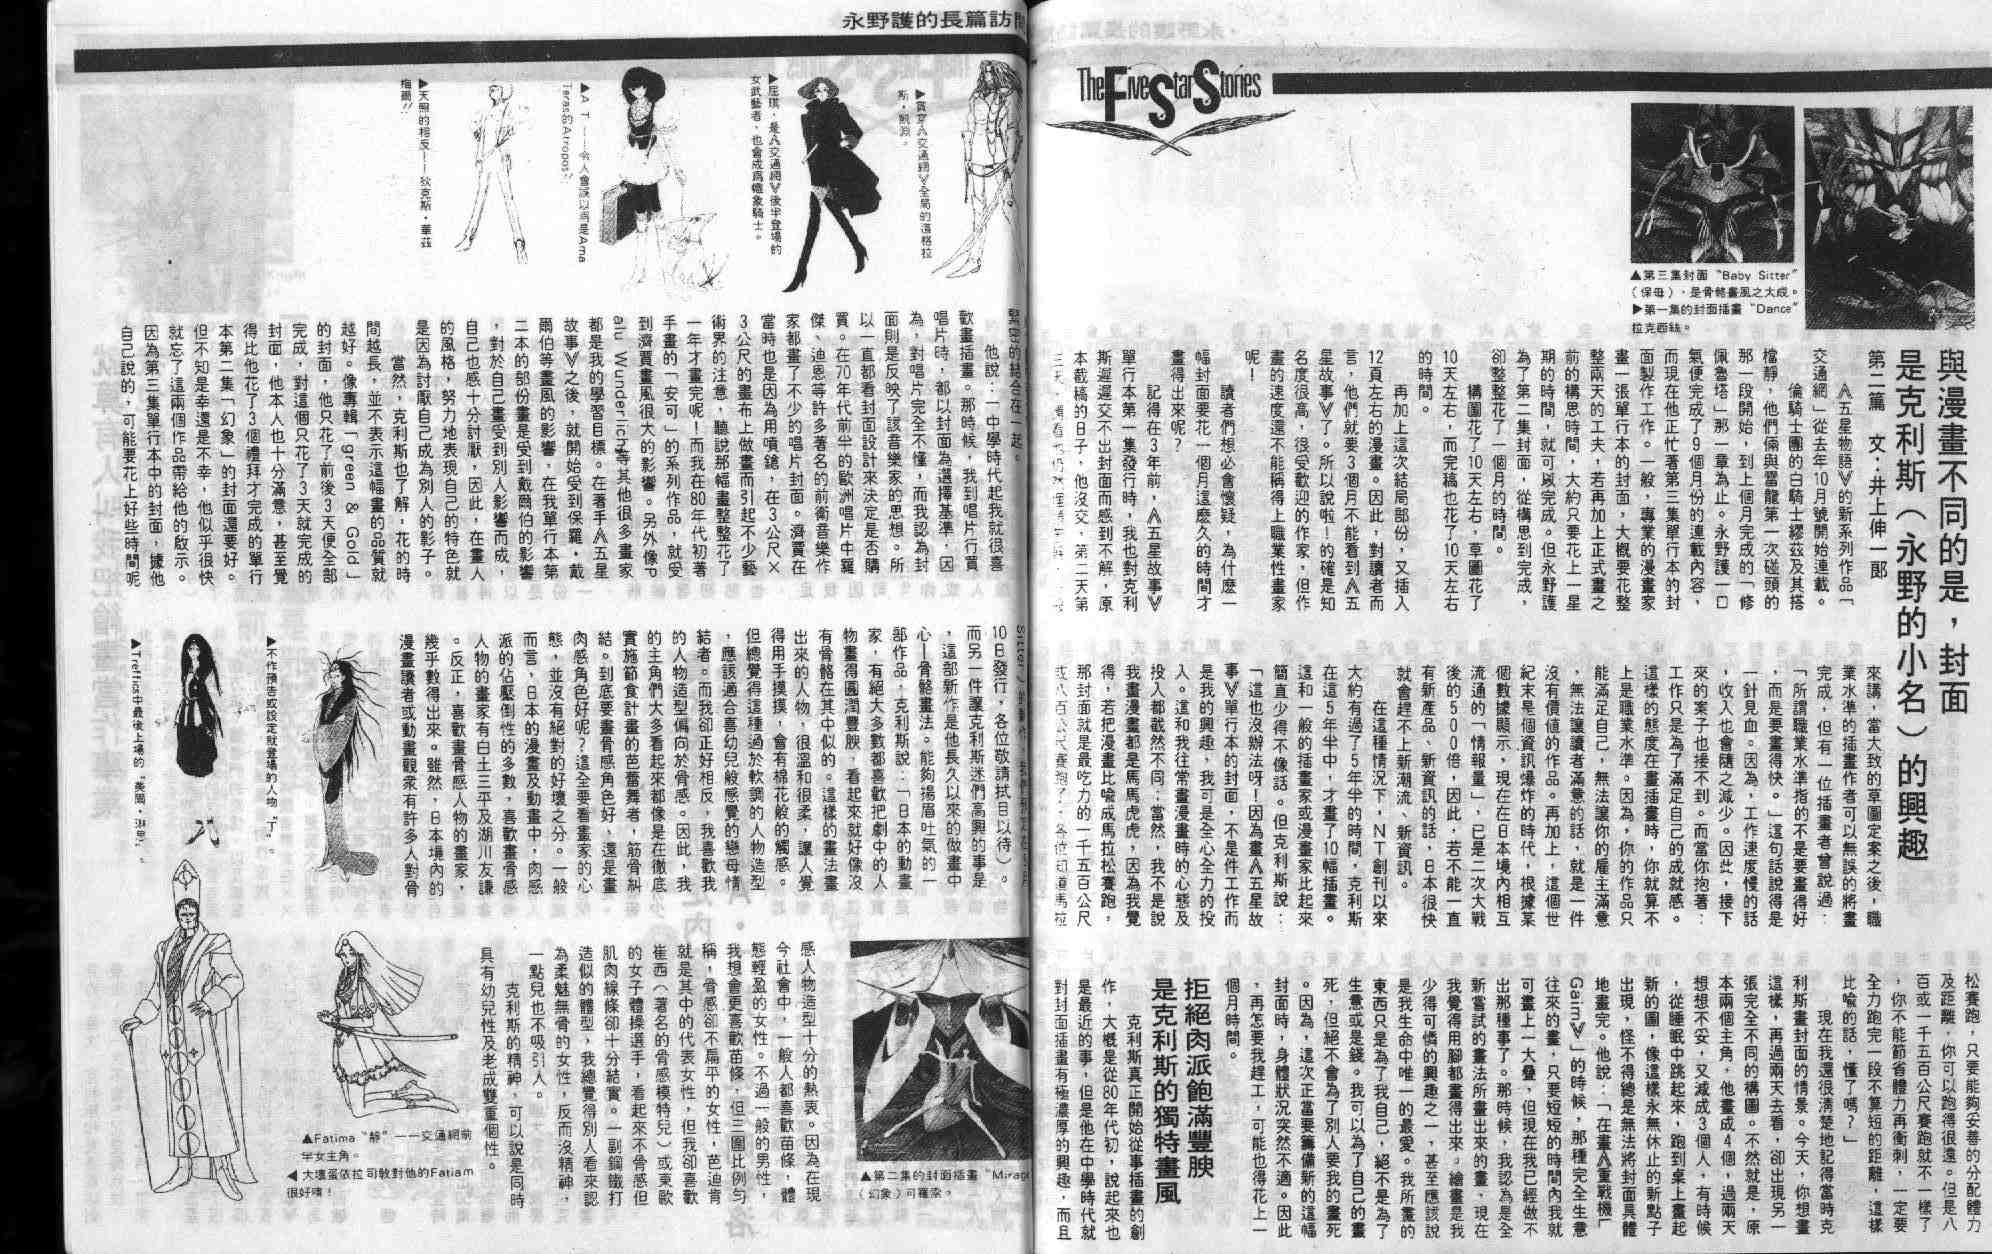 The Five Star Stories
▲第三集封面“Baby Sitter”
（保母），是骨骼畫風之大成。
▶第一集的封面插畫“Dance”
拉克西絲。
與漫畫不同的是，封面
是克利斯（永野的小名）的興趣
第二篇　文：井上伸一郎
《五星物語》的新系列作品「
交通網」從去年10月號開始連載。
倫騎士團的白騎士繆茲及其搭
檔靜，他們倆與雷龍第一次碰頭的
那一段開始，到上個月完成的「修
佩魯塔」那一章為止。永野護一口
氣便完成了9個月份的連載內容，
而現在他正忙著第三集單行本的封
面製作工作。一般，專業的漫畫家
畫一張單行本的封面，大概要花整
整兩天的工夫，若再加上正式畫之
前的構思時間，大約只要花上一星
期的時間，就可以完成。但永野護
為了第二集封面，從構思到完成，
卻整整花了一個月的時間。
構圖花了10天左右，草圖花了
10天左右，而完稿也花了10天左右
的時間。
再加上這次結局部份，又插入
12頁左右的漫畫。因此，對讀者而
言，他們就要3個月不能看到《五
星故事》了。所以說啦！的確是知
名度很高，很受歡迎的作家，但作
畫的速度還不能稱得上職業性畫家
呢！
讀者們想必會懷疑，為什麼一
幅封面要花一個月這麼久的時間才
畫得出來呢？
記得在3年前，《五星故事》
單行本第一集發行時，我也對克利
斯遲遲交不出封面而感到不解，原
本截稿的日子，他沒交，第二天第
來講，當大致的草圖定案之後，職
業水準的插畫作者可以無誤的將畫
完成，但有一位插畫者曾說過：
「所謂職業水準指的不是要畫得好
，而是要畫得快。」這句話說得是
一針見血。因為，工作速度慢的話
，收入也會隨之減少。因此，接下
來的案子也接不到。而當你抱著：
工作只是為了滿足自己的成就感。
這樣的態度在畫插畫時，你就算不
上是職業水準。因為，你的作品只
能滿足自己，無法讓你的雇主滿意
，無法讓讀者滿意的話，就是一件
沒有價值的作品。再加上，這個世
紀末是個資訊爆炸的時代，根據某
個數據顯示，現在在日本境內相互
流通的「情報量」，已是二次大戰
後的500倍，因此，若不能一直
有新產品、新資訊的話，日本很快
就會趕不上新潮流、新資訊。
在這種情況下，NT創刊以來
大約有過了5年半的時間，克利斯
在這5年半中，才畫了10幅插畫。
這和一般的插畫家或漫畫家比起來
簡直少得不像話。但克利斯說：
「這也沒辦法呀！因為畫《五星故
事》單行本的封面，不是件工作而
是我的興趣，我可是全心全力的投
入。這和我往常畫漫畫時的心態及
投入都截然不同；當然，我不是說
我畫漫畫都是馬馬虎虎，因為我覺
得，若把漫畫比喻成馬拉松賽跑，
那封面就是最吃力的一千五百公尺
松賽跑，只要能夠妥善的分配體力
及距離，你可以跑得很遠。但是八
百或一千五百公尺賽跑就不一樣了
，你不能節省體力再衝刺，一定要
全力跑完一段不算短的距離，這樣
比喻的話，懂了嗎？」
現在我還很清楚地記得當時克
利斯畫封面的情景。今天，你想畫
這樣，再過兩天去看，卻出現另一
張完全不同的構圖。不然就是，原
本兩個主角，他畫成4個，過兩天
想想不妥，又減成3個人，有時候
，從睡眠中跳起來，跑到桌上畫起
新的圖，像這樣永無休止的新點子
出現，怪不得總是無法將封面具體
地畫完。他說：「在畫《重戰機
Gaim》」的時候，那種完全生意
往來的畫，只要短短的時間內我就
可畫上一大疊，但現在我已經做不
出那種事了。那時候，我認為是全
新嘗試的畫法所畫出來的畫，現在
我覺得用腳都畫得出來。繪畫是我
少得可憐的興趣之一，甚至應該說
是我生命中唯一的最愛。我所畫的
東西只是為了我自己，絕不是為了
生意或是錢。我可以為了自己的畫
死，但絕不會為了別人要我的畫死
。因為，這次正當要籌備新的這幅
封面時，身體狀況突然不適。因此
，再怎要我趕工，可能也得花上一
個月時間。
拒絕肉派飽滿豐腴
是克利斯的獨特畫風
克利斯真正開始從事插畫的創
作，大概是從80年代初，說起來也
是最近的事，但是他在中學時代就
對封面插畫有極濃厚的興趣，而且
永野護的長篇訪
▶貫穿《交通網》全局的達格拉
斯・凱淵。
▶屈琪，是《交通網》後半登場的
女武藝者，也會成為幟象騎士。
▲AT——令人會誤以為是Ama
Teras的Atropos?
▶天照的相反——狄克斯・華茲
梅爾!!
緊密的結合在一起。
他說：一中學時代起我就很喜
歡畫插畫。那時候，我到唱片行買
唱片時，都以封面為選擇基準，因
為，對唱片完全不懂，而我認為封
面則是反映了該音樂家的思想。所
以一直都看封面設計來決定是否購
買。在70年代前半的歐洲唱片中羅
傑、迪恩等許多著名的前衛音樂作
家都畫了不少的唱片封面。濟賈在
當時也是因為用噴鎗，在3公尺×
3公尺的畫布上做畫而引起不少藝
術界的注意，聽說那幅畫整整花了
一年才畫完呢！而我在80年代初著
手畫的「安可」的系列作品，就受
到濟賈畫風很大的影響。另外像P
alu Wunderlich等其他很多畫家
都是我的學習目標。在著手《五星
故事》之後，就開始受到保羅・戴
爾伯等畫風的影響，在我單行本第
二本的部份畫是受到戴爾伯的影響
，對於自己畫受到別人影響而成，
自己也感十分討厭，因此，在畫人
的風格，努力地表現自己的特色就
是因為討厭自己成為別人的影子。
當然，克利斯也了解，花的時
間越長，並不表示這幅畫的品質就
越好。像專輯「green & Gold」
的封面，他只花了前後3天便全部
完成，對這個只花了3天就完成的
封面，他本人也十分滿意，甚至覺
得比他花了3個禮拜才完成的單行
本第二集「幻象」的封面還要好。
但不知是幸還是不幸，他似乎很快
就忘了這兩個作品帶給他的啟示。
因為第三集單行本中的封面，據他
自己說的，可能要花上好些時間呢
10日發行，各位敬請拭目以待）。
而另一件讓克利斯迷們高興的事是
，這部新作是他長久以來的做畫中
心—骨骼畫法。能夠揚眉吐氣的一
部作品，克利斯說：「日本的動畫
家，有絕大多數都喜歡把劇中的人
物畫得圓潤豐腴，看起來就好像沒
有骨骼在其中似的。這樣的畫法畫
出來的人物，很溫和很柔，讓人覺
得用手摸摸，會有棉花般的觸感。
但總覺得這種過於軟調的人物造型
，應該適合喜幼兒般感覺的戀母情
結者。而我卻正好相反，我喜歡我
的人物造型偏向於骨感。因此，我
的主角們大多看起來都像是在徹底
實施節食計畫的芭蕾舞者，筋骨糾
結。到底要畫骨感角色好，還是畫
肉感角色好呢？這全要看畫家的心
態，並沒有絕對的好壞之分。一般
而言，日本的漫畫及動畫中，肉感
派的佔壓倒性的多數，喜歡畫骨感
人物的畫家有白土三平及湖川友謙
。反正，喜歡畫骨感人物的畫家，
幾乎數得出來。雖然，日本境內的
漫畫讀者或動畫觀衆有許多人對骨
▶不作預告或設定就登場的人物“丁”。
▶Treffics中最後上場的“美岡・洪思”。
▲第二集的封面插畫“Mirage
（幻象）可羅索。
感人物造型十分的熱衷。因為在現
今社會中，一般人都喜歡苗條，體
態輕盈的女性。不過一般的男性，
我想會更喜歡苗條，但三圍比例勻
稱，骨感卻不扁平的女性，芭迪肯
就是其中的代表女性，但我卻喜歡
崔西（著名的骨感模特兒）或東歐
的女子體操選手，看起來不骨感但
肌肉線條卻十分結實。一副鋼鐵打
造似的體型，我總覺得別人看來認
為柔魅無骨的女性，反而沒精神，
一點兒也不吸引人。
克利斯的精神，可以說是同時
具有幼兒性及老成雙重個性。
▲Fatima“靜”——交通網前
半女主角。
◀大壞蛋依拉司敎對他的Fatiam
很好唷！